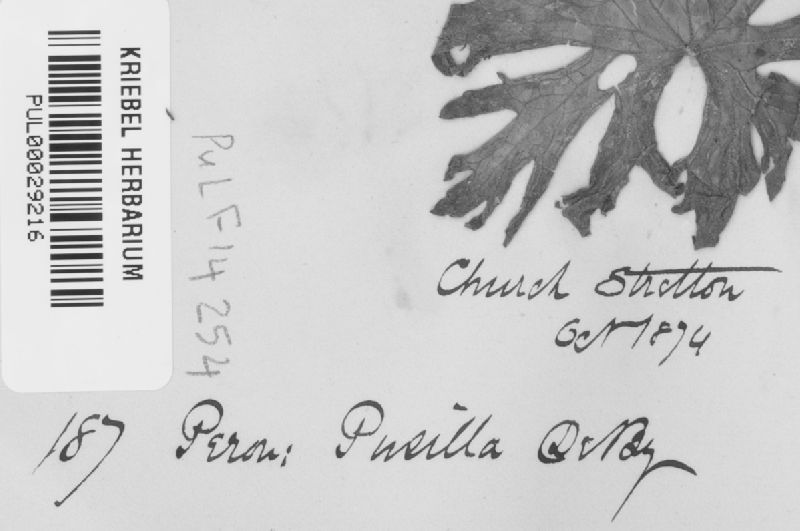 KRIEBEL HERBARIUM
PUL00029216
PuL F14254
Church Stretton
Oct 1874
187 Peron: Pusilla DeBy